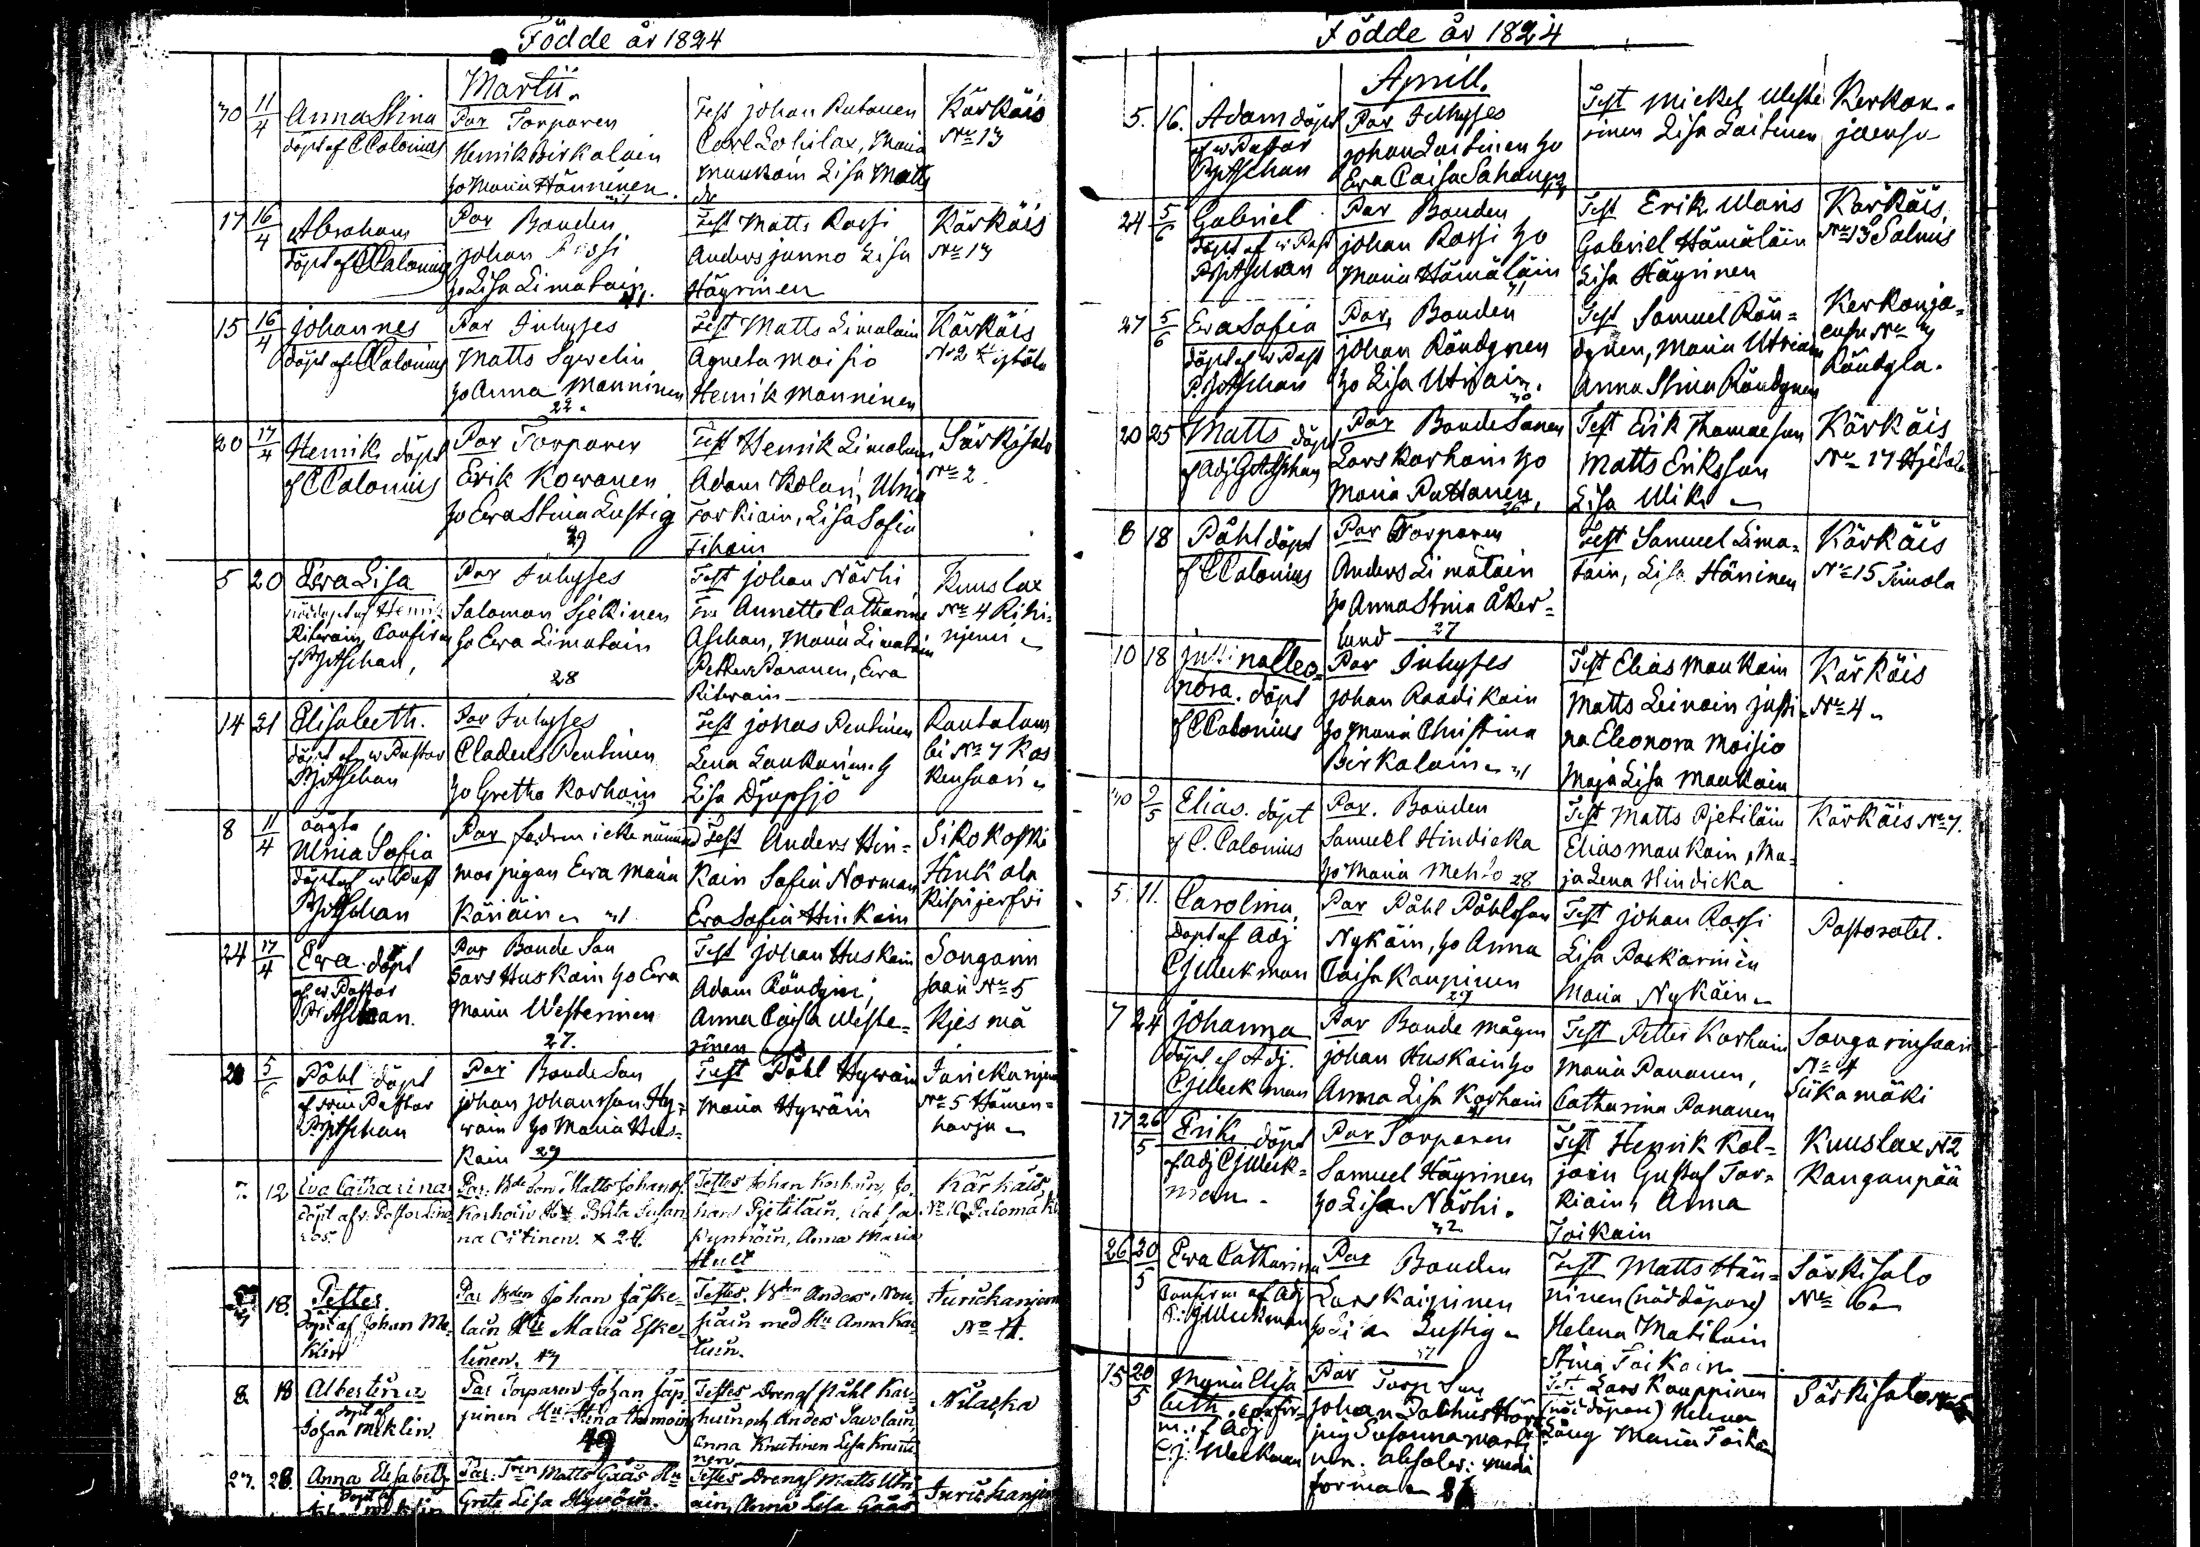 Födde år 1824
Martii.
30 11/4 Anna Stina
döpt af C Calonius
Par Torparen
Henrik Birkalain
ho Maria Hänninen.
Test johan Rutanen
Carl Lohilax, Maria
Maukain Lisa Matts
dr
Kärkäis
No 13
17 16/4 Abraham
döpt af C Calonius
Par Bonden
johan Rossi
ho Lisa Limatain
Test Matts Rossi
Anders junno Lisa
Häyrinen
Kärkäis
No 13
15 16/4 johannes
döpt af C Calonius
Par Inhyses
Matts Sywelin
ho Anna Manninen
22.
Test Matts Limatain
Agneta Moisio
Henrik Manninen
Kärkäis
No 2
20 17/4 Henrik döpt
af C Calonius
Par Torparen
Erik Kowanen
ho Ewa Stina Lustig
39
Test Henrik Limatain
Adam Kolari, Ulrica
Torkiain, Lisa Sofia
Tihain
Särkisalo
No 2.
5 20 Ewa Lisa
nöddöpt af Henrik
Riterain, Confirm
af Aschan,
Par Inhyses
Salomon Tjekinen
ho Ewa Limatain
28
Test johan Närhi
Annette Catharina
Aschan, Maria Limatain
Petter Paranen, Ewa
Riterain
Kuuslax
No 4
14 21 Elisabeth.
döpt af w Pastor
Aschan
Par Inhyses
Cladens Pentinen
ho Gretha Korhain
Test johas Pentinen
Lena Laukarinen
Lisa Djupsjö
Rautalam
bi No 7 Kos
kensaari
8 11/4 oägta
Ulrica Sofia
döpt af w Past
Aschan
Par fadren icke nämnd
mor pigan Ewa Maria
Käriäin 31
Test Anders Hin-
kain Sofia Norman
Ewa Sofia Hinkain
Sikokoski
Hinkala
24 17/4 Ewa döpt
af w Pastor
Aschan.
Par Bonde Son
Lars Huskain ho Ewa
Maria Westerinen
27.
Test johan Huskain
Adam Röndyin,
Anna Caisa Weste-
rinen
Songarin
saari No 5
Kjes mä
28 5/6 Påhl döpt
af Pastor
Aschan
Par Bonde Son
johan johansson Hy-
wäin ho Maria Hus-
kain 29
Test Påhl Hywäin
Maria Hywäin
No 5 Hämen-
harju
7. 12 Eva Catharina
Döpt af v. Pastor
Par. Bde Son Matts Johanss.
Korhoin Hu Brita Susan
na Oitinen. 24.
Testes Johan Korhoin, Jo-
han Pjetiläin, Cat sa
Anna Maria
Hult
Kärkäis
No 10 Palomäki
18. Petter.
Döpt af Johan Me-
klin
Par Bden Johan Jäske-
läin Hu Maria Eske-
linen. 43
Testes. Bden Anders Nou-
siain med Hu Anna Kar
tuin.
No 4.
8. 18 Albertina
döpt af
Johan Meklin.
Par Torparen Johan Jäp-
pinen Hu Stina
49
Testes Drengs Påhl Kar-
huin och Anders Savolain,
Anna Knutinen Lisa Knuti
nen.
Nilacka
27. 28. Anna Elisabeth
Döpt af
Johan Meklin
Par. Matts Gåås Hu
Greta Lisa Hyvöin.
Testes Drengs Matts Utri
ain, Anna Lisa Gåås
Födde år 1824
Aprill.
5. 16. Adam döpt
af w Pastor
Aschan
Par Inhyses
johan Laitinen ho
Ewa Caisa Sahanen
Test Mickel Weste
rinen Lisa Laitinen
Kerkon-
jaensu
24 5/6 Gabriel
döpt af w Past
Aschan
Par Bonden
johan Rossi ho
Maria Hämäläin
Test Erik Waris
Gabriel Hämäläin
Lisa Häyrinen
Kärkäis,
No 13 Salmis
27 5/6 Ewa Sofia
döpt af w Past
Aschan
Par Bonden
johan Röndynen
ho Lisa Utriain.
30
Test Samuel Rön-
dynen, Maria Utriain
Anna Stina Röndynen
Kerkonja-
ensu No
Röndyla.
20 25 Matts döpt
af Adj Aschan
Par Bonde Sonen
Lars Korhoin ho
Maria Puttanen,
Test Erik Thomasson
Matts Eriksson
Lisa Wik
Kärkäis
No 17
8 18 Påhl döpt
af C Calonius
Par Torparen
Anders Limatain
ho Anna Stina Åker-
lund 27
Test Samuel Lima-
tain, Lisa Häninen
Kärkäis
No 15 Timola
10 18 justina Eleo-
nora. döpt
af C Calonius
Par Inhyses
johan Raadikain
ho Maria Christina
Birkalain 31
Test Elias Maukain
Matts Leinain justi-
na Eleonora Moisio
Maja Lisa Maukain
Kärkäis
No 4
30 9/5 Elias. döpt
af C. Calonius
Par. Bonden
Samuel Hindicka
ho Maria Mehto 28
Test Matts Pjetiläin
Elias Maukain, Ma-
ja Lena Hindicka
Kärkäis No 7.
5. 11. Carolina,
döpt af Adj
CJ Weckman
Par Påhl Påhlsson
Nykäin, ho Anna
Caisa Kaupinen
29
Test johan Rossi
Lisa Paskarinen
Maria Nykäin
Pastoratet.
7 24 johanna
döpt af Adj.
CJ Weckman
Par Bonde mågen
johan Huskain ho
Anna Lisa Korhain
Test Petter Korhain
Maria Pananen,
Catharina Pananen
Songarinsaari
No 4
Siikamäki
17 26/5 Erik döpt
af Adj CJ Weck-
man
Par Torparen
Samuel Häyrinen
ho Lisa Närhi.
32
Test Henrik Kol-
join Gustaf Tor-
kiain, Anna
Toikain
Kuuslax N2
Kanganpää
26 20/5 Ewa Catharina
Confirm af Adj
CJ Weckman
Par Bonden
Lars Kaipinen
ho Lisa Lustig
37
Test Matts Hän-
ninen (nöddöpare)
Helena Matilain
Stina Toikain
Särkisalo
No 6
15 20/5 Maria Elisa
beth, confir-
m. af Adj
C.J. Weckman
Par Torp Son
johan Dalhus
Susanna Marti
nen.
Test Lars Kauppinen
(nöddöpare) Helena
Läng Maria Toikain
Särkisalo